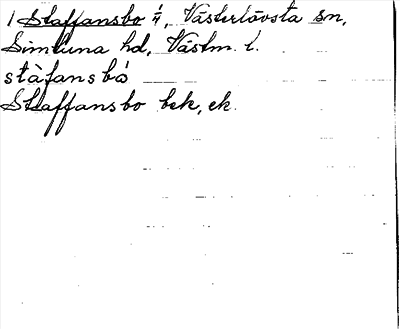 1 Staffansbo 1/4, Västerlövsta sn,
Simtuna hd, Västm. l.
stàfansbó
Staffansbo bek, ek.